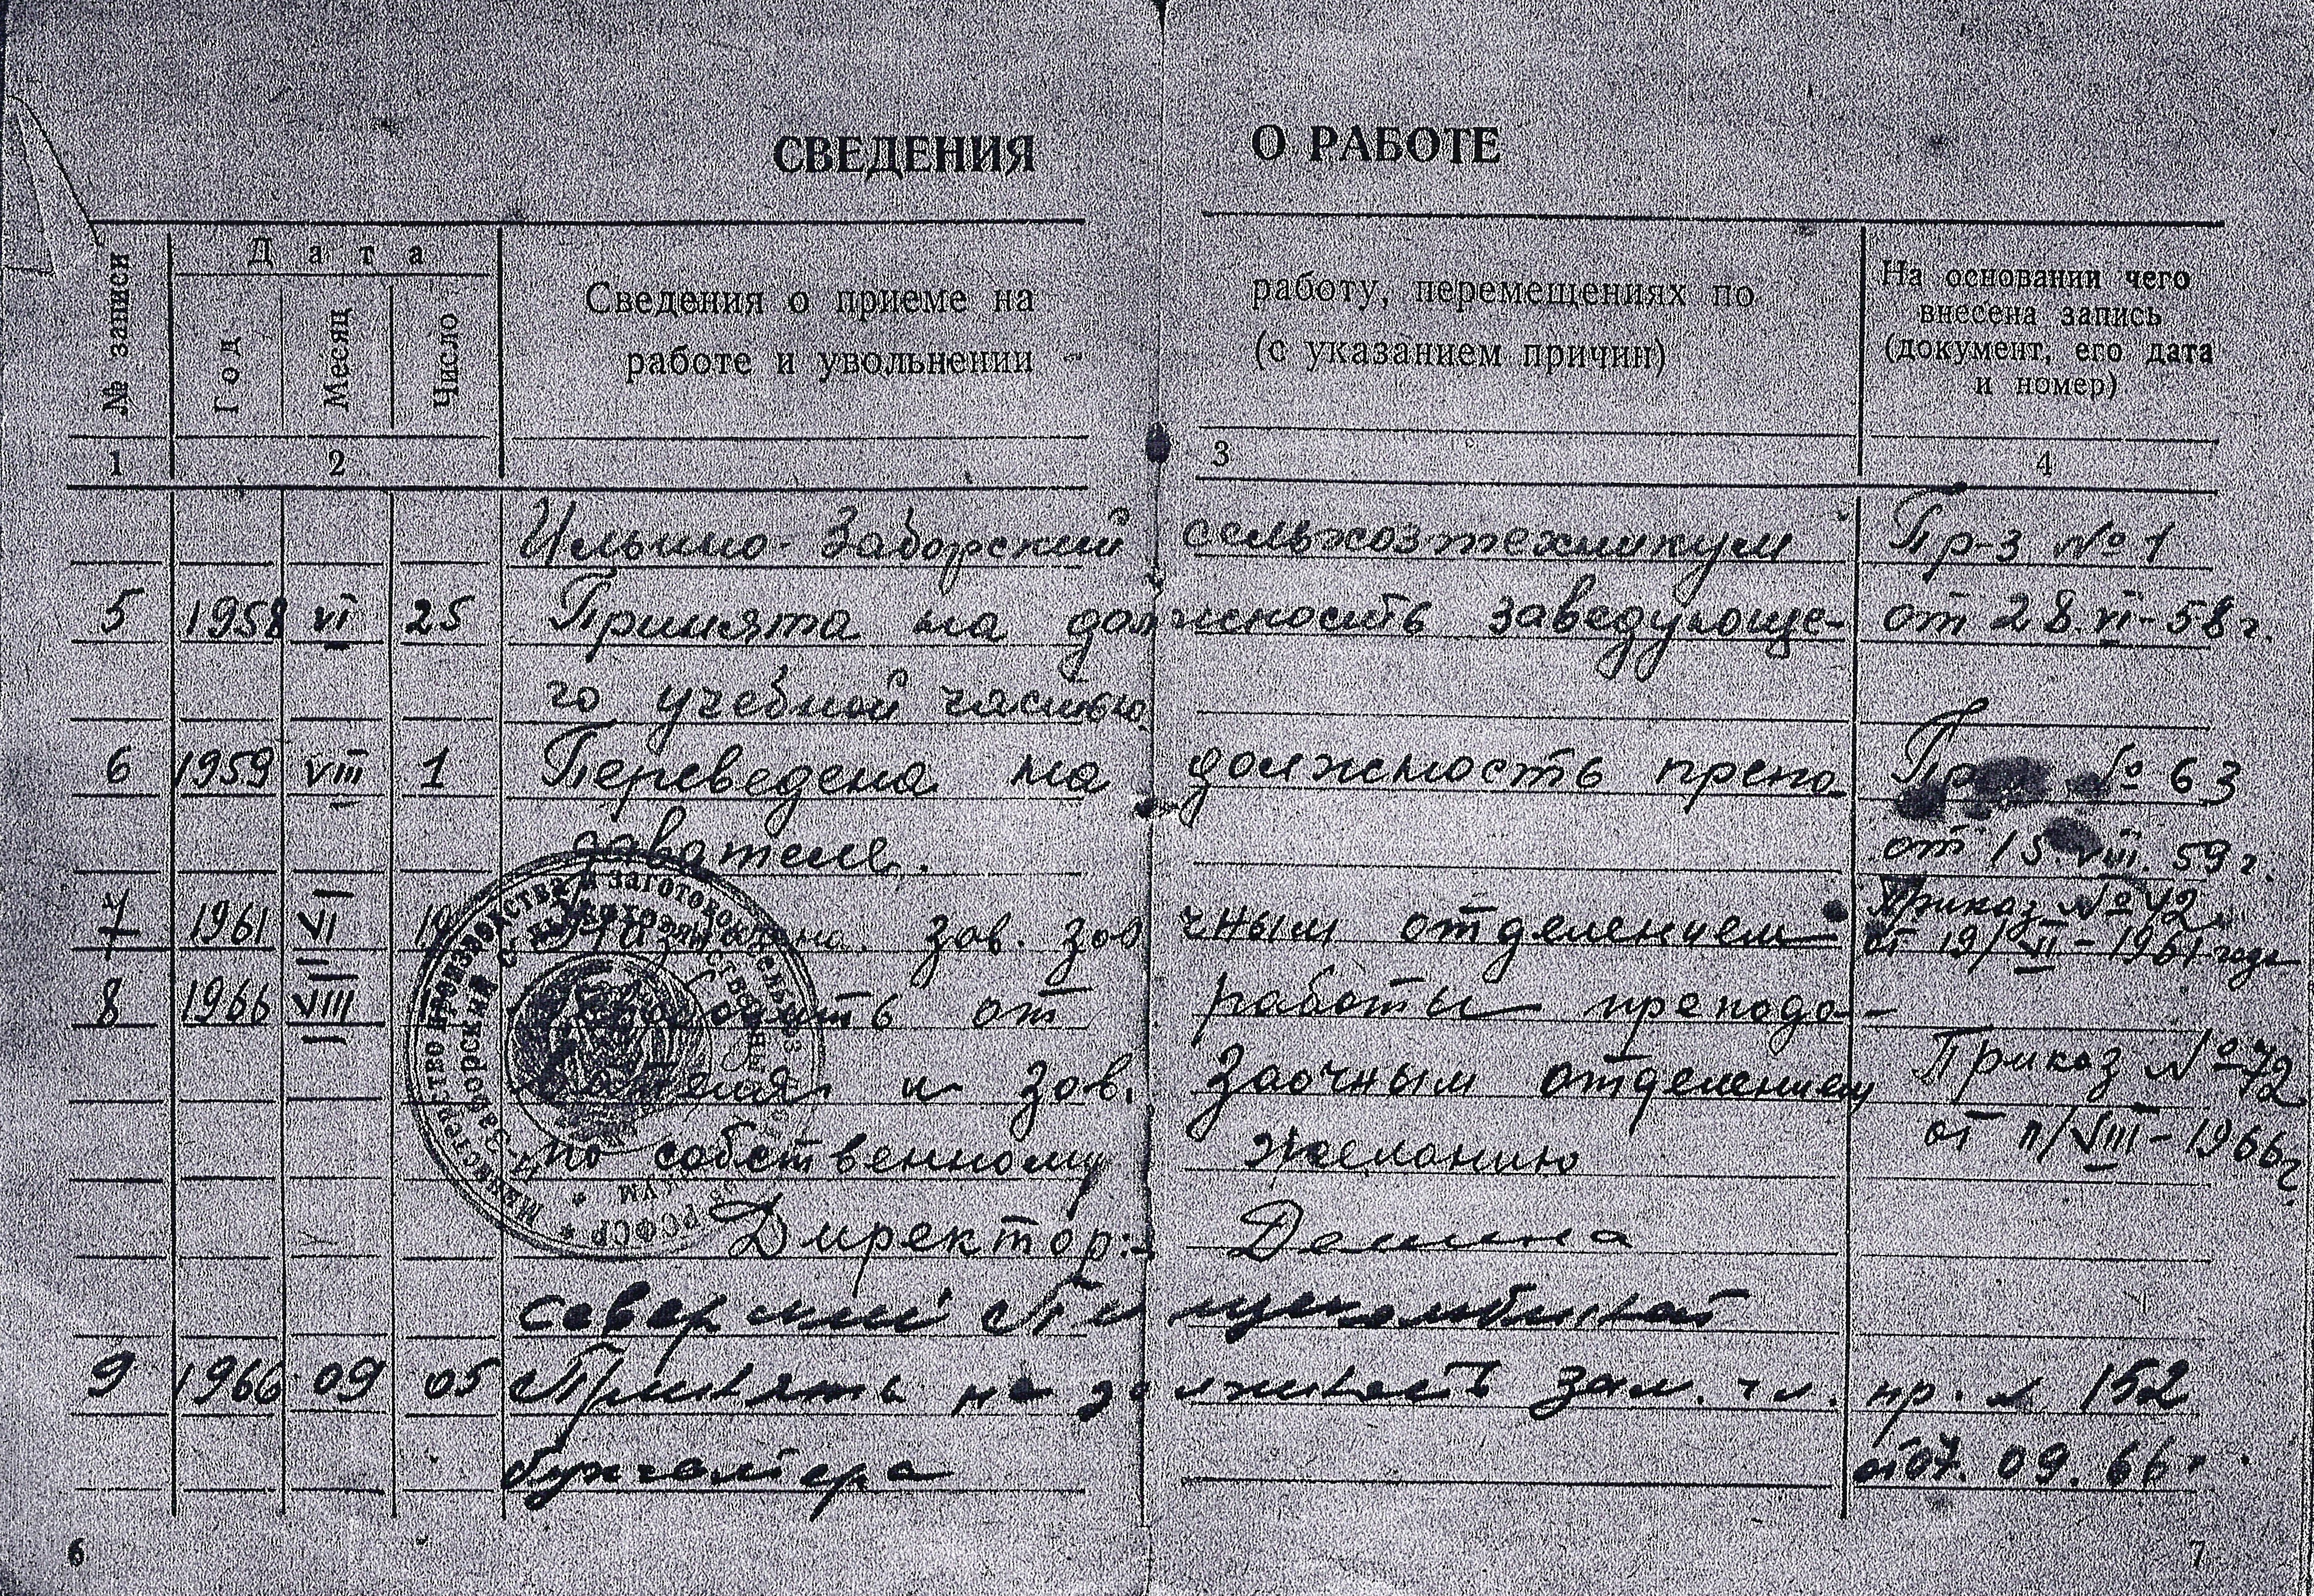 СВЕДЕНИЯ О РАБОТЕ
№ записи
Дата
Год
Месяц
Число
Сведения о приеме на работу, перемещениях по
работе и увольнении (с указанием причин)
На основании чего
внесена запись
(документ, его дата
и номер)
1 2 3 4
Ильино-Заборский сельхозтехникум Пр-з № 1
5 1958 VI 25 Принята на должность заведующе- от 28.VI-58 г.
го учебной частью
6 1959 VIII 1 Переведена на должность препо- № 63
давателя. от 15.VIII.59 г.
7 1961 VI зав. заочным отделением Приказ № 42
от 19/VI-1961 года
8 1966 VIII от работы препода-
вателя и зав. Заочным отделением Приказ № 72
по собственному желанию от 11/VIII-1966 г.
Директор:- Демина
9 1966 09 05 Принять на должность зам. гл. пр. № 152
бухгалтера от 07.09.66 г.
6 7